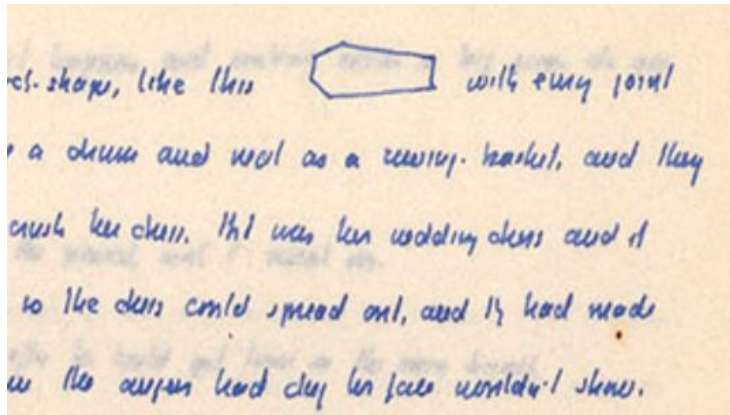 shape, like this with every joint
a drum and neat as a sewing-basket, and they
crush her dress. It was her wedding dress and it
so the dress could spread out, and they had made
the augers had dug her face wouldn't show.